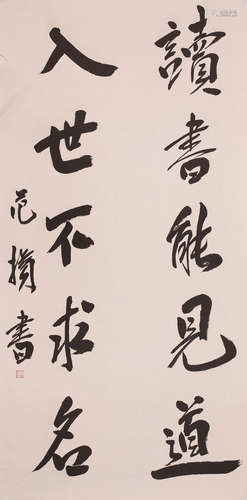 讀書能見道
入世不求名
范損書